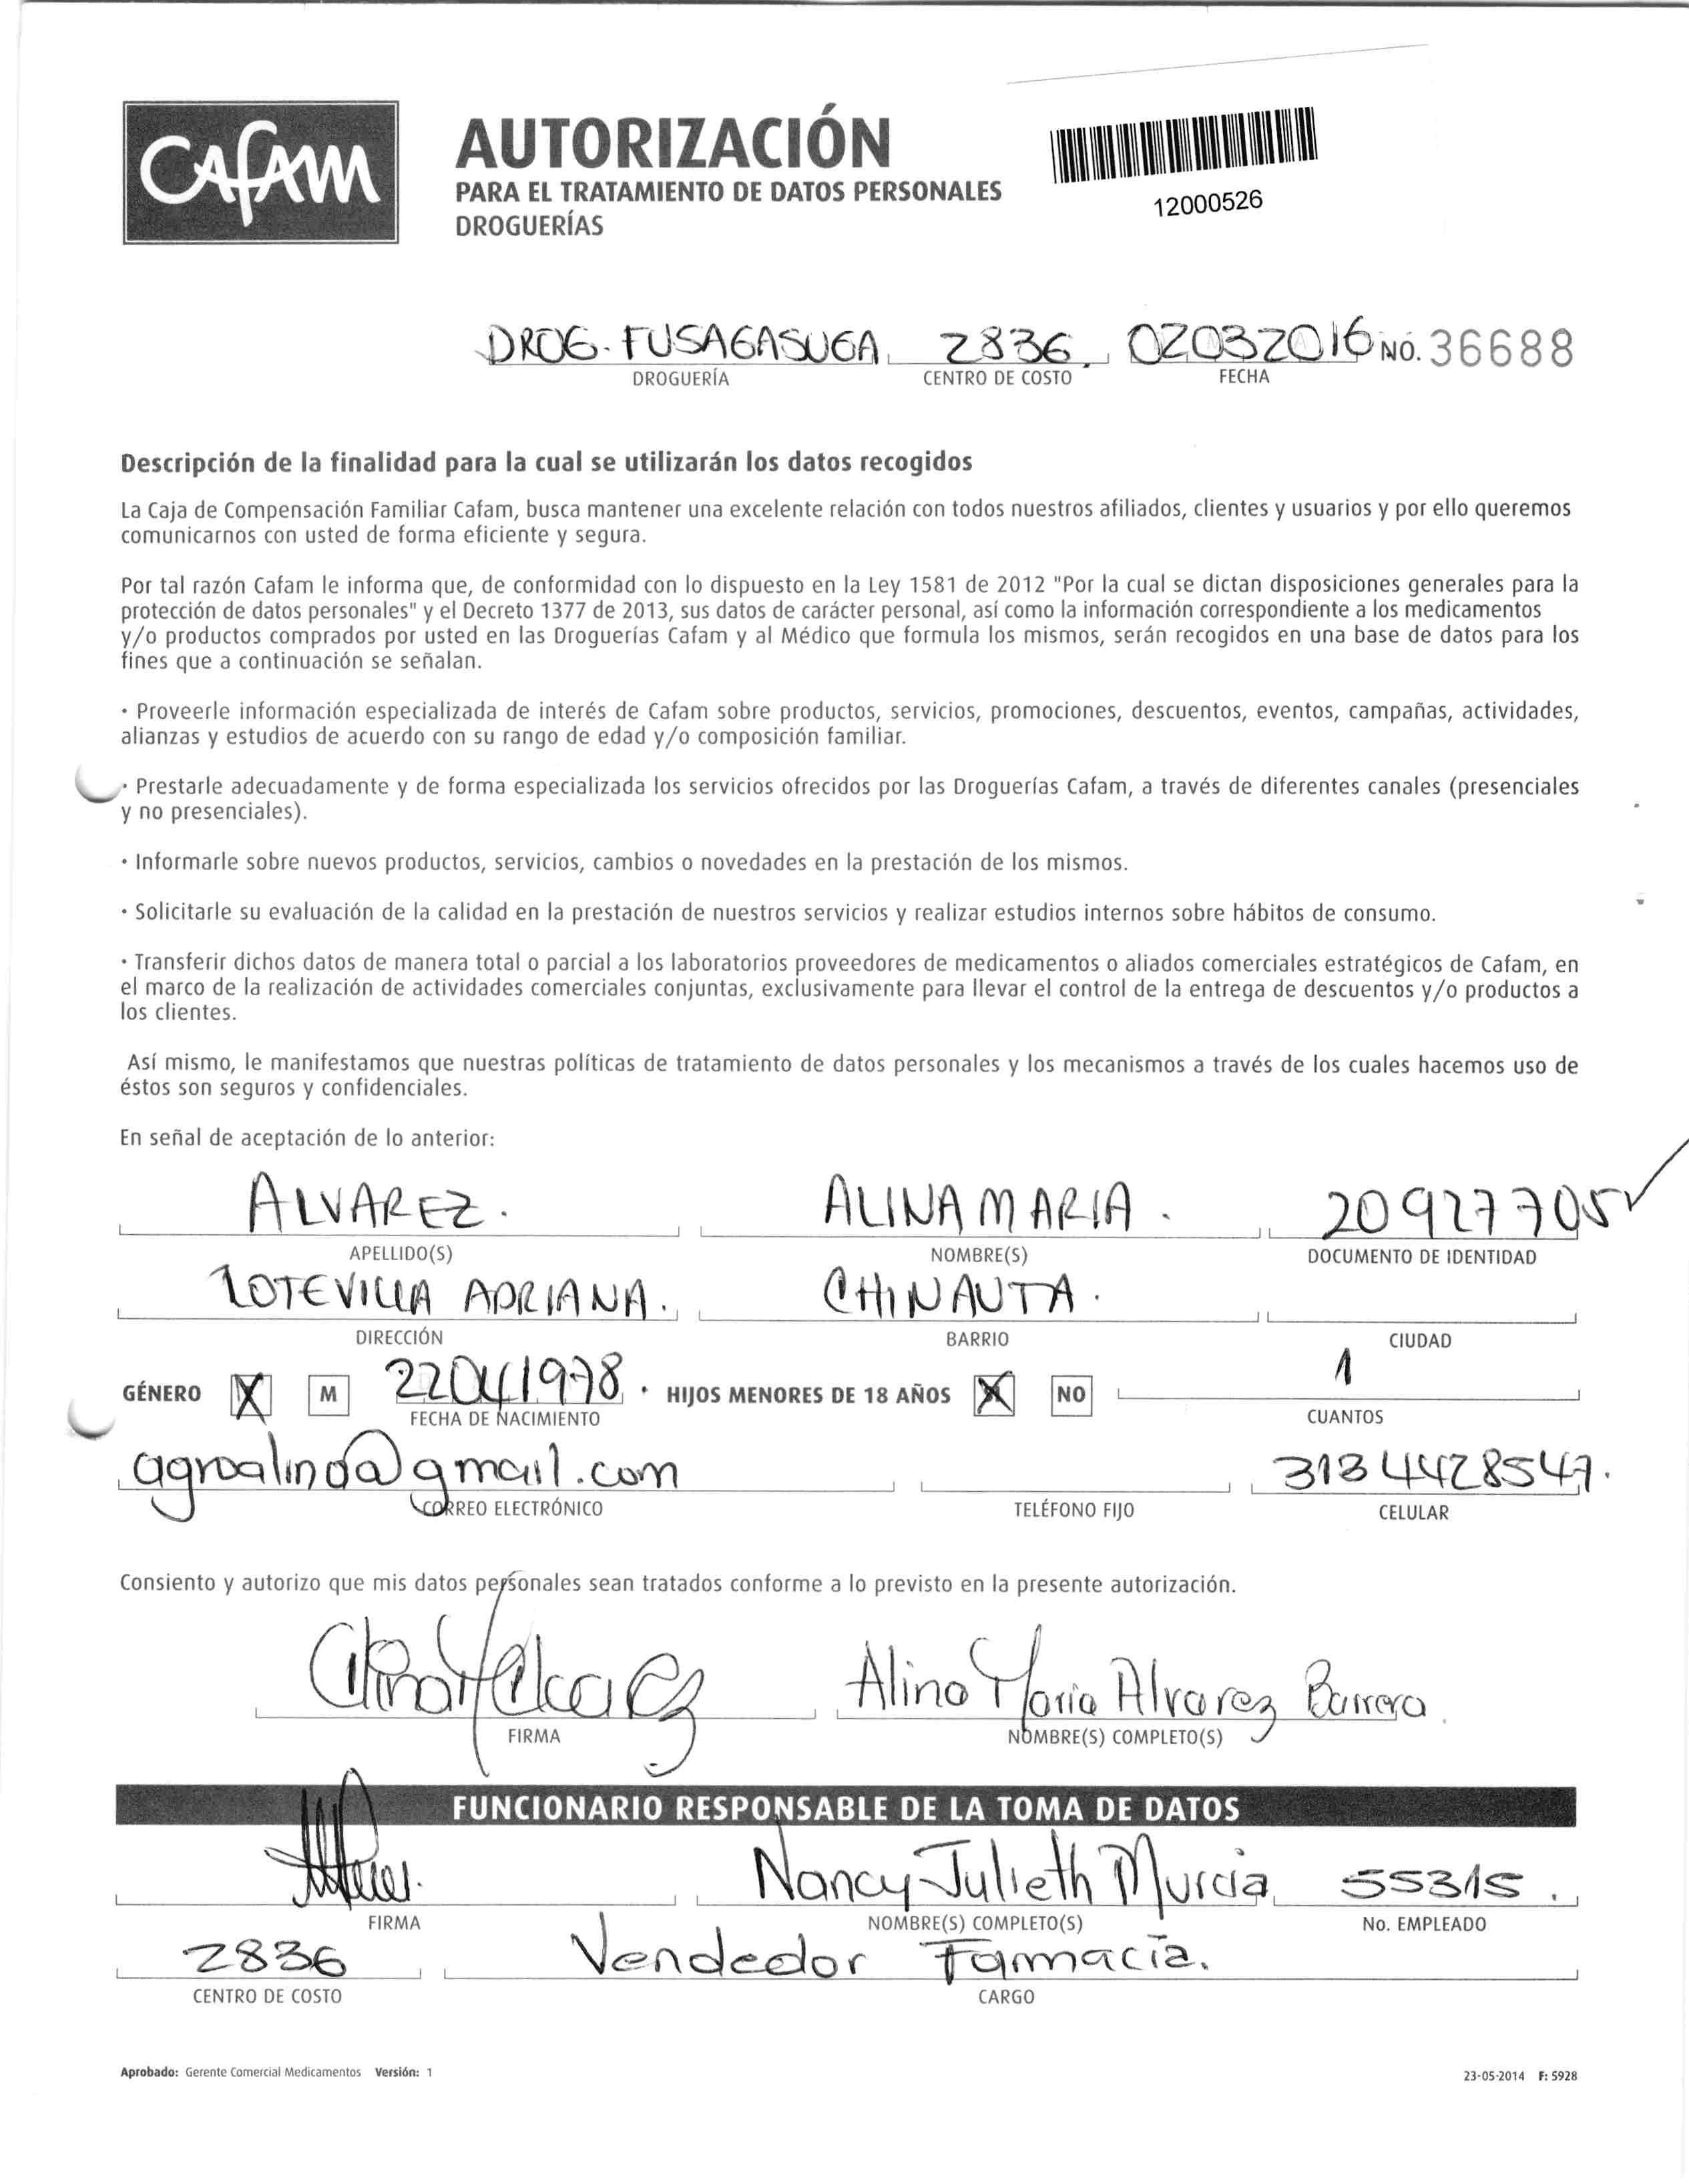 CAFAM
AUTORIZACIÓN
PARA EL TRATAMIENTO DE DATOS PERSONALES
DROGUERÍAS
12000526
DROG. FUSAGASUGA 2836 02032016 NO. 36688
DROGUERÍA CENTRO DE COSTO FECHA
Descripción de la finalidad para la cual se utilizarán los datos recogidos
La Caja de Compensación Familiar Cafam, busca mantener una excelente relación con todos nuestros afiliados, clientes y usuarios y por ello queremos
comunicarnos con usted de forma eficiente y segura.
Por tal razón Cafam le informa que, de conformidad con lo dispuesto en la Ley 1581 de 2012 "Por la cual se dictan disposiciones generales para la
protección de datos personales" y el Decreto 1377 de 2013, sus datos de carácter personal, así como la información correspondiente a los medicamentos
y/o productos comprados por usted en las Droguerías Cafam y al Médico que formula los mismos, serán recogidos en una base de datos para los
fines que a continuación se señalan.
· Proveerle información especializada de interés de Cafam sobre productos, servicios, promociones, descuentos, eventos, campañas, actividades,
alianzas y estudios de acuerdo con su rango de edad y/o composición familiar.
· Prestarle adecuadamente y de forma especializada los servicios ofrecidos por las Droguerías Cafam, a través de diferentes canales (presenciales
y no presenciales).
· Informarle sobre nuevos productos, servicios, cambios o novedades en la prestación de los mismos.
· Solicitarle su evaluación de la calidad en la prestación de nuestros servicios y realizar estudios internos sobre hábitos de consumo.
· Transferir dichos datos de manera total o parcial a los laboratorios proveedores de medicamentos o aliados comerciales estratégicos de Cafam, en
el marco de la realización de actividades comerciales conjuntas, exclusivamente para llevar el control de la entrega de descuentos y/o productos a
los clientes.
Así mismo, le manifestamos que nuestras políticas de tratamiento de datos personales y los mecanismos a través de los cuales hacemos uso de
éstos son seguros y confidenciales.
En señal de aceptación de lo anterior:
ALVAREZ. ALINA MARIA. 20927705
APELLIDO(S) NOMBRE(S) DOCUMENTO DE IDENTIDAD
LOTE VILLA ADRIANA. CHINAUTA.
DIRECCIÓN BARRIO CIUDAD
GÉNERO X M 22041978. HIJOS MENORES DE 18 AÑOS X NO 1
FECHA DE NACIMIENTO CUANTOS
agroalinda@gmail.com 3134428547.
CORREO ELECTRÓNICO TELÉFONO FIJO CELULAR
Consiento y autorizo que mis datos personales sean tratados conforme a lo previsto en la presente autorización.
Alina Maria Alvarez Barrera
FIRMA NOMBRE(S) COMPLETO(S)
FUNCIONARIO RESPONSABLE DE LA TOMA DE DATOS
Nancy Julieth Murcia 55315.
FIRMA NOMBRE(S) COMPLETO(S) No. EMPLEADO
2836 Vendedor Farmacia.
CENTRO DE COSTO CARGO
Aprobado: Gerente Comercial Medicamentos Versión: 1 23-05-2014 F: 5928